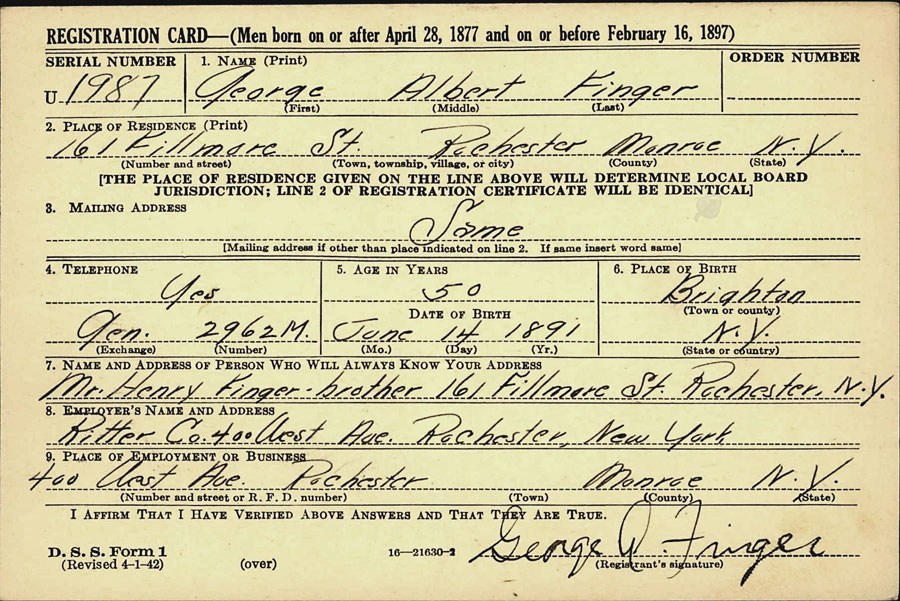 REGISTRATION CARD—(Men born on or after April 28, 1877 and on or before February 16, 1897)
SERIAL NUMBER 1. NAME (Print) ORDER NUMBER
U 1987 George Albert Finger
(First) (Middle) (Last)
2. PLACE OF RESIDENCE (Print)
161 Fillmore St. Rochester Monroe N.Y.
(Number and street) (Town, township, village, or city) (County) (State)
[THE PLACE OF RESIDENCE GIVEN ON THE LINE ABOVE WILL DETERMINE LOCAL BOARD
JURISDICTION; LINE 2 OF REGISTRATION CERTIFICATE WILL BE IDENTICAL]
3. MAILING ADDRESS
Same
[Mailing address if other than place indicated on line 2. If same insert word same]
4. TELEPHONE 5. AGE IN YEARS 6. PLACE OF BIRTH
Yes 50 Brighton
DATE OF BIRTH (Town or county)
Gen. 2962M. June 14 1891 N.Y.
(Exchange) (Number) (Mo.) (Day) (Yr.) (State or country)
7. NAME AND ADDRESS OF PERSON WHO WILL ALWAYS KNOW YOUR ADDRESS
Mr. Henry Finger-brother 161 Fillmore St. Rochester, N.Y.
8. EMPLOYER'S NAME AND ADDRESS
Ritter Co. 400 West Ave. Rochester, New York
9. PLACE OF EMPLOYMENT OR BUSINESS
400 West Ave. Rochester Monroe N.Y.
(Number and street or R. F. D. number) (Town) (County) (State)
I AFFIRM THAT I HAVE VERIFIED ABOVE ANSWERS AND THAT THEY ARE TRUE.
D. S. S. Form 1 16—21630-2 George A. Finger
(Revised 4-1-42) (over) (Registrant's signature)